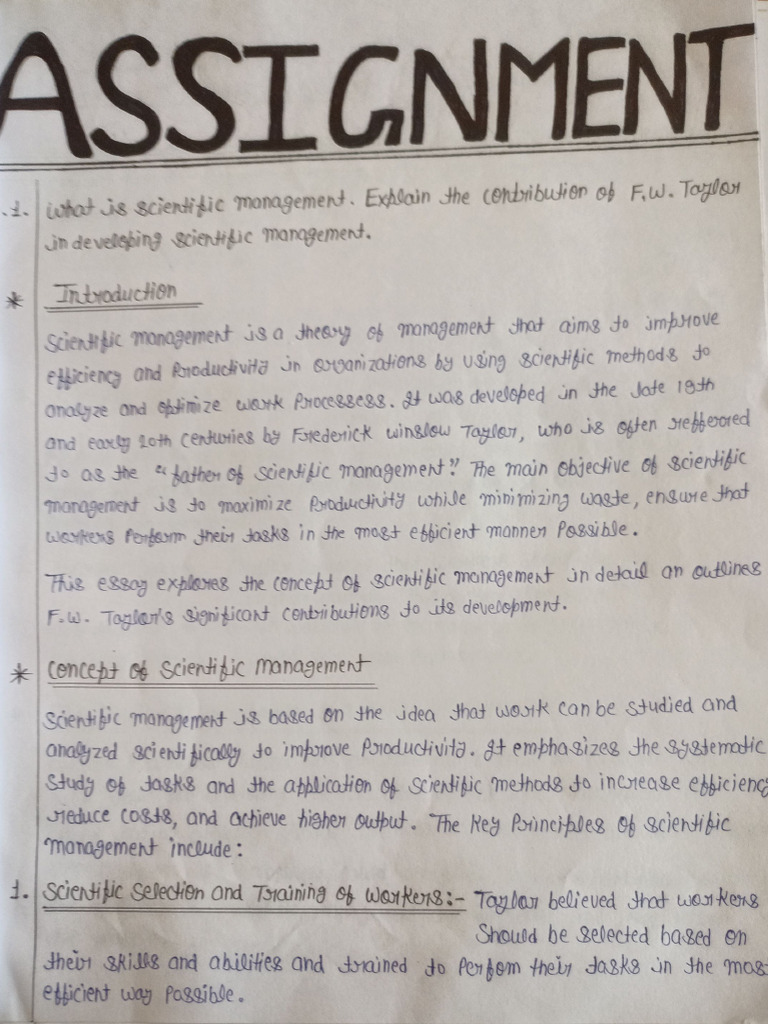 ASSIGNMENT
.1. What is scientific management. Explain the contribution of F.W. Taylor
in developing scientific management.
* Introduction
Scientific management is a theory of management that aims to improve
efficiency and Productivity in organizations by using scientific methods to
analyze and optimize work Processess. It was developed in the late 19th
and early 20th centuries by Frederick Winslow Taylor, who is often reffered
to as the "father of scientific management". The main objective of scientific
management is to maximize Productivity while minimizing waste, ensure that
workers Perform their tasks in the most efficient manner Possible.
This essay explores the concept of scientific management in detail an outlines
F.W. Taylor's significant contributions to its development.
* Concept of Scientific Management
Scientific management is based on the idea that work can be studied and
analyzed scientifically to improve Productivity. It emphasizes the systematic
Study of tasks and the application of scientific methods to increase efficiency
reduce costs, and achieve higher output. The Key Principles of scientific
management include:
1. Scientific Selection and Training of Workers:- Taylor believed that workers
Should be selected based on
their skills and abilities and trained to Perfom their tasks in the mos
efficient way Possible.